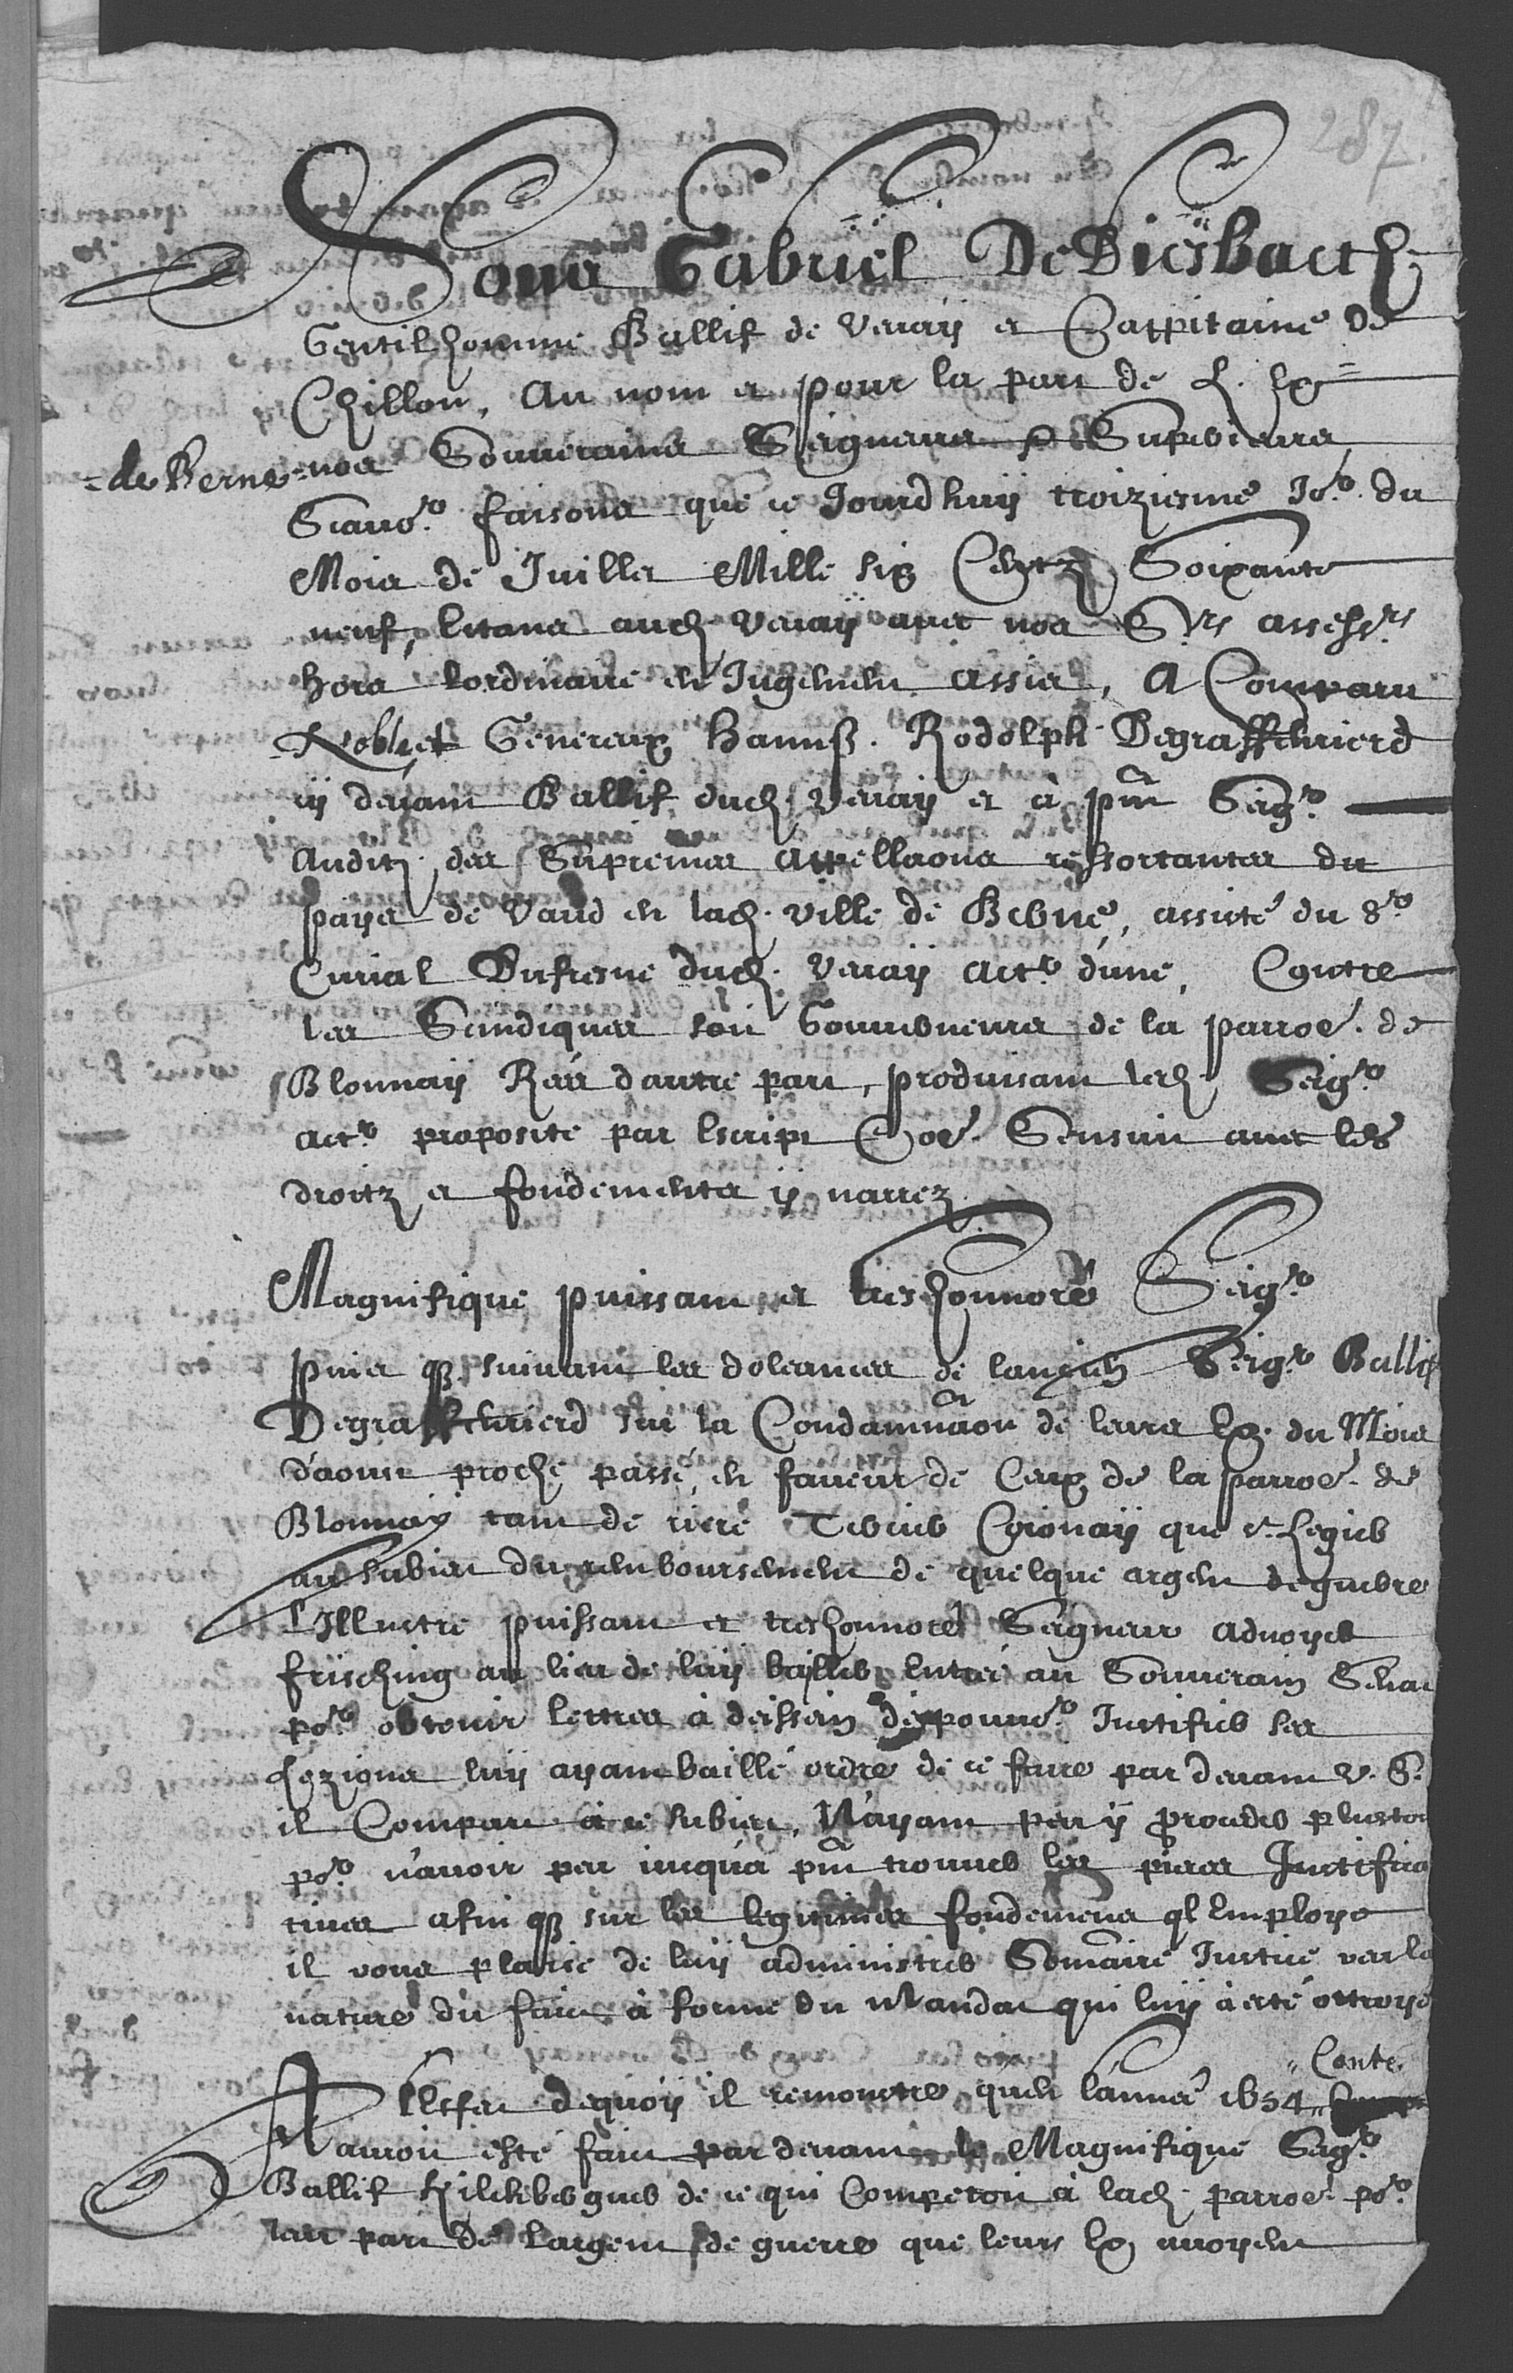 287.
Nous Gabriel De Diesbach
Gentilhomme Ballif de Vevaÿ et Cappitaine de
Chillon, Au nom et pour la part de L. Ex.
nos Souverains Seigneurs et Superieurs
=de Berne=
Scavo.r faisons que ce Jourdhuÿ troiziesme Jo.r du
Mois de Juillet Mille six Centz Soixante
neuf, Estans aud. Vevaÿ avec nos Srs assessrs
hors lordinaire en Jugement assis, A Comparu
Noble et Genereux Hannß. Rodolph Degraffenrierd
cÿ devant Ballif dud. Vevaÿ et à pnt Seigr
Audit. des Supremes Appellaons ressortantes du
paÿs de Vaud en lad. ville de Berne, assisté du Sr
Curial Dufresne dud. Vevaÿ actr dune, Contre
les Scindiques soit Gouverneurs de la parroe. de
Blonnaÿ Rées dautre part, produisant led. Seigr
actr proposite par Escript Coe. Sensuit avec les
droitz et fondements ÿ narrez
Magnifique puissant et treshonnoré Seigr
puis q suivant les doleances de lancien Seigr Ballif
Degraffenrierd sur la Condamnaon de leurs Ex. du Mois
d'aoust proche passé, en faveur de Ceux de la parroe. de
Blonnaÿ tant de riere Tercier Chionaÿ que St Legier
au subiet du remboursement de quelque argent de guerre
L'Illustre puissant et treshonnoré Seigneur advoyer
frisching au lieu de luÿ bailler Entrée au Souverain Senat
por obtenir lettres à dessein de pouvor Justifier ses
Lezions luÿ ayant baillé ordre de ce faire par devant V. S.
il Compart à ce subiet, N'ayant peu ÿ proceder plustot
por n'avoir peu jucqu'à pnt trouver les pieces Justifica
tives afin q sur les legitimes fondemens ql Employe
il vous plaise de luÿ administrer Sommaire Justice vers la
nature du faict à forme du Mandat qui luÿ à esté ottroyé
A L'Effect dequoÿ il remonstre qu'en lannée 1654 " Conte
auroit esté faict par devant le Magnifique Seigr
Ballif Kilchberguer de ce qui Competoit à lad. parroe. por
leur part de Largent de guerre que leurs Ex. avoyent